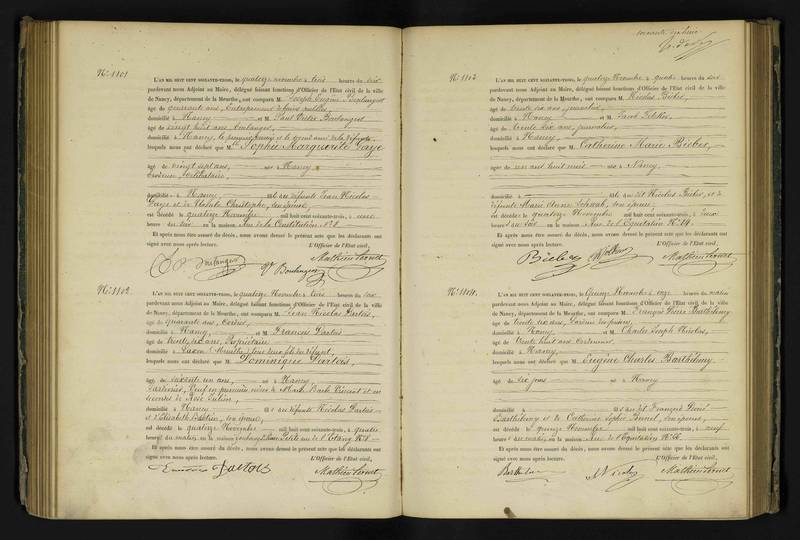 N°. 1101
L'AN MIL HUIT CENT SOIXANTE-TROIS, le quatorze novembre à trois heures du soir
pardevant nous Adjoint au Maire, délégué faisant fonctions d'Officier de l'Etat civil de la ville
de Nancy, département de la Meurthe, ont comparu M. Joseph Eugène Boulanger
âgé de quarante ans, Entrepreneur
domicilié à Nancy et M. Paul Victor Boulanger
âgé de vingt huit ans, boulanger
domicilié à Nancy, le et le second ami de la défunte
lesquels nous ont déclaré que M. Sophie Marguerite Gaye
âgée de vingt sept ans, née à Nancy
célibataire
domiciliée à Nancy fille de défunts Jean Nicolas
Gaye et de Christophe, son épouse
est décédée le quatorze Novembre mil huit cent soixante-trois, à une
heure du soir en la maison Rue de la Constitution N° 8
Et après nous être assuré du décès, nous avons dressé le présent acte que les déclarants ont
signé avec nous après lecture. L'Officier de l'Etat civil,
Boulanger Boulanger
N°. 1102
L'AN MIL HUIT CENT SOIXANTE-TROIS, le quatorze Novembre à trois heures du soir
pardevant nous Adjoint au Maire, délégué faisant fonctions d'Officier de l'Etat civil de la ville
de Nancy, département de la Meurthe, ont comparu M. Jean Nicolas Dartois
âgé de quarante ans
domicilié à Nancy et M. François Dartois
âgé de trente six ans, Propriétaire
domicilié à Laxou Meurthe, tous deux fils du défunt
lesquels nous ont déclaré que M. Dominique Dartois
âgé de soixante un ans, né à Nancy
Veuf en premières noces de Barbe Vincent et en
secondes de Rose
domicilié à Nancy fils de défunts Nicolas Dartois
et d'Elisabeth son épouse
est décédé le quatorze Novembre mil huit cent soixante-trois, à quatre
heures du matin en la maison Rue de l'Etang N° 8
Et après nous être assuré du décès, nous avons dressé le présent acte que les déclarants ont
signé avec nous après lecture. L'Officier de l'Etat civil,
Dartois
N°. 1103
L'AN MIL HUIT CENT SOIXANTE-TROIS, le quatorze Novembre à quatre heures du soir
pardevant nous Adjoint au Maire, délégué faisant fonctions d'Officier de l'Etat civil de la ville
de Nancy, département de la Meurthe, ont comparu M. Nicolas
âgé de trente six ans, journalier
domicilié à Nancy et M. Jacob
âgé de trente six ans, journalier
domicilié à Nancy
lesquels nous ont déclaré que M. Catherine Marie
âgée de un an huit mois née à Nancy
domiciliée à fille dudit Nicolas et de
défunte Marie Anne Schwab, son épouse
est décédée le quatorze Novembre mil huit cent soixante-trois, à deux
heures du soir en la maison Rue de l'Equitation N° 14
Et après nous être assuré du décès, nous avons dressé le présent acte que les déclarants ont
signé avec nous après lecture. L'Officier de l'Etat civil,
N°. 1104
L'AN MIL HUIT CENT SOIXANTE-TROIS, le Quinze Novembre à onze heures du matin
pardevant nous Adjoint au Maire, délégué faisant fonctions d'Officier de l'Etat civil de la ville
de Nancy, département de la Meurthe, ont comparu M. François Barthélemy
âgé de trente six ans, Gardien des prisons
domicilié à Nancy et M. Charles Joseph Nicolas
âgé de trente huit ans cordonnier
domicilié à Nancy
lesquels nous ont déclaré que M. Eugène Charles Barthélemy
âgé de dix jours né à Nancy
domicilié à fils dudit François
Barthélemy et de Catherine Sophie son épouse
est décédé le quinze Novembre mil huit cent soixante-trois, à neuf
heures du matin, en la maison Rue de l'Equitation N°
Et après nous être assuré du décès, nous avons dressé le présent acte que les déclarants ont
signé avec nous après lecture. L'Officier de l'Etat civil,
Nicolas